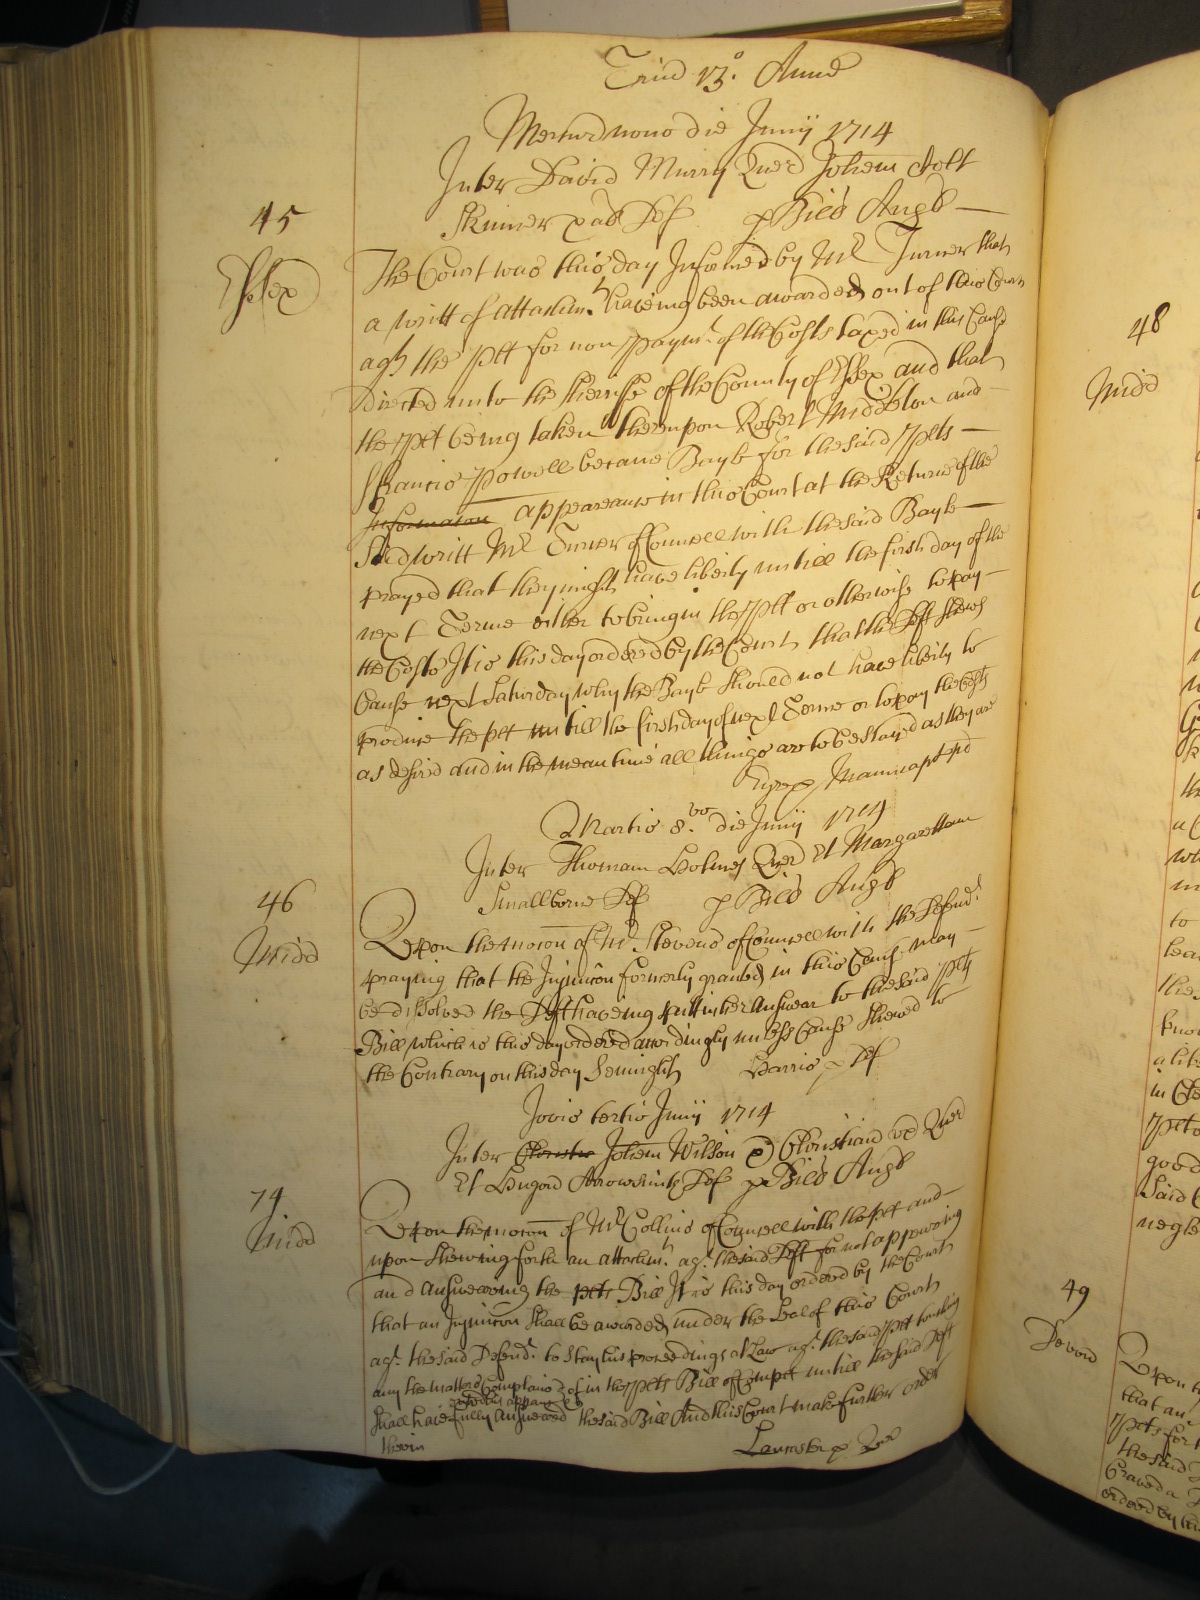 Trin 13.º Anne
Mercur nono die Junij 1714
45
Essex
Inter David Murry Quer Johem Holt
Skinner & al Def p Bill Angl
The Court was this day Informed by Mr. Turner that
a writt of attachmt. haveing been awarded out of this Court
agt the Plt for non paymt. of the Costs taxed in this Cause
Directed unto the Sherriffe of the County of Essex and that
the Plt being taken thereupon Robert Middleton and
Francis Powell became Bayle for the said Plts
Informacon appearance in this Court at the Returne of the
Said writt Mr. Turner of Councell with the said Bayle
prayed that they might have liberty untill the first day of the
next Terme either to bring in the Plt or otherwise to pay
the Costs It is this day ordered by the Court that the Deft Shew
Cause next Saturday why the Bayle Should not have liberty to
produce the Plt untill the first day of next Terme or to pay the Costs
as desired and in the meantime all things are to be stayed as they are
p Manucapt pd
Martis 8.vo die Junij 1714
46
Midd
Inter Thomam Holmes Quer Et Margarettam
Smallborne Def p Bill Angl
Upon the mocon of Mr. Stevens of Councell with the Defend.t
praying that the Injuncon formerly granted in this Cause may
be dissolved the Deft haveing putt in her Answear to the said Plts
Bill which is this day ordered accordingly unless Cause Shewed to
the Contrary on this day Sennight Harris p Def
Jovis tertio Junij 1714
74
Midd
Inter Christia Johem Wilson & Christiana ux Quer
Et Hugon Arrowsmith Def p Bill Angl
Upon the mocon of Mr. Collins of Councell with the plt and
upon Shewing forth an attachmt. agt. the said Deft for not appearing
and Answearing the plts Bill It is this day ordered by the Court
that an Injuncon Shall be awarded under the Seal of this Court
agt. the said Defendt. to Stay his proceedings at Law agt. the said Plt touching
any the matters Complained of in the Plts Bill of Compt untill the said Deft
Shall have fully Answeared the said Bill And this Court make further order
therein Lancaster p Quer
48
Midd
49
Devon
Upon t
that an
Plts for
the said
Craved a
ordered by